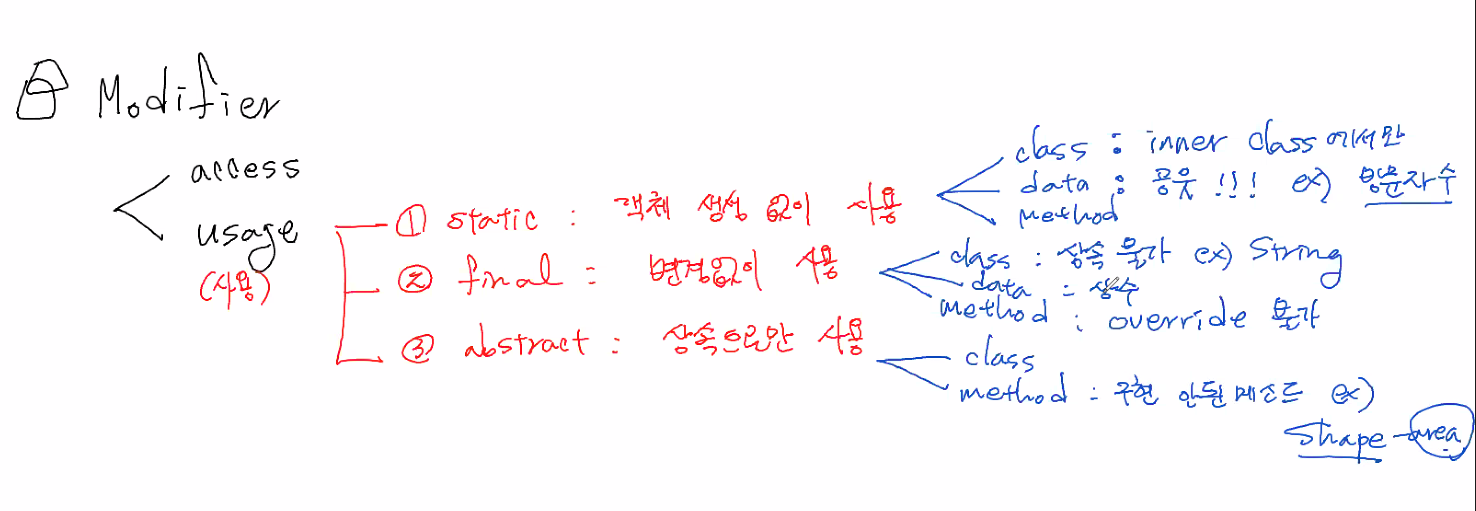 Modifier
access
usage
(사용)
① static : 객체 생성 없이 사용
class : inner class에서만
data : 공유 !!! ex) 방문자수
method
② final : 변경없이 사용
class : 상속 불가 ex) String
data : 상수
method : override 불가
③ abstract : 상속으로만 사용
class
method : 구현 안된 메소드 ex)
Shape - area